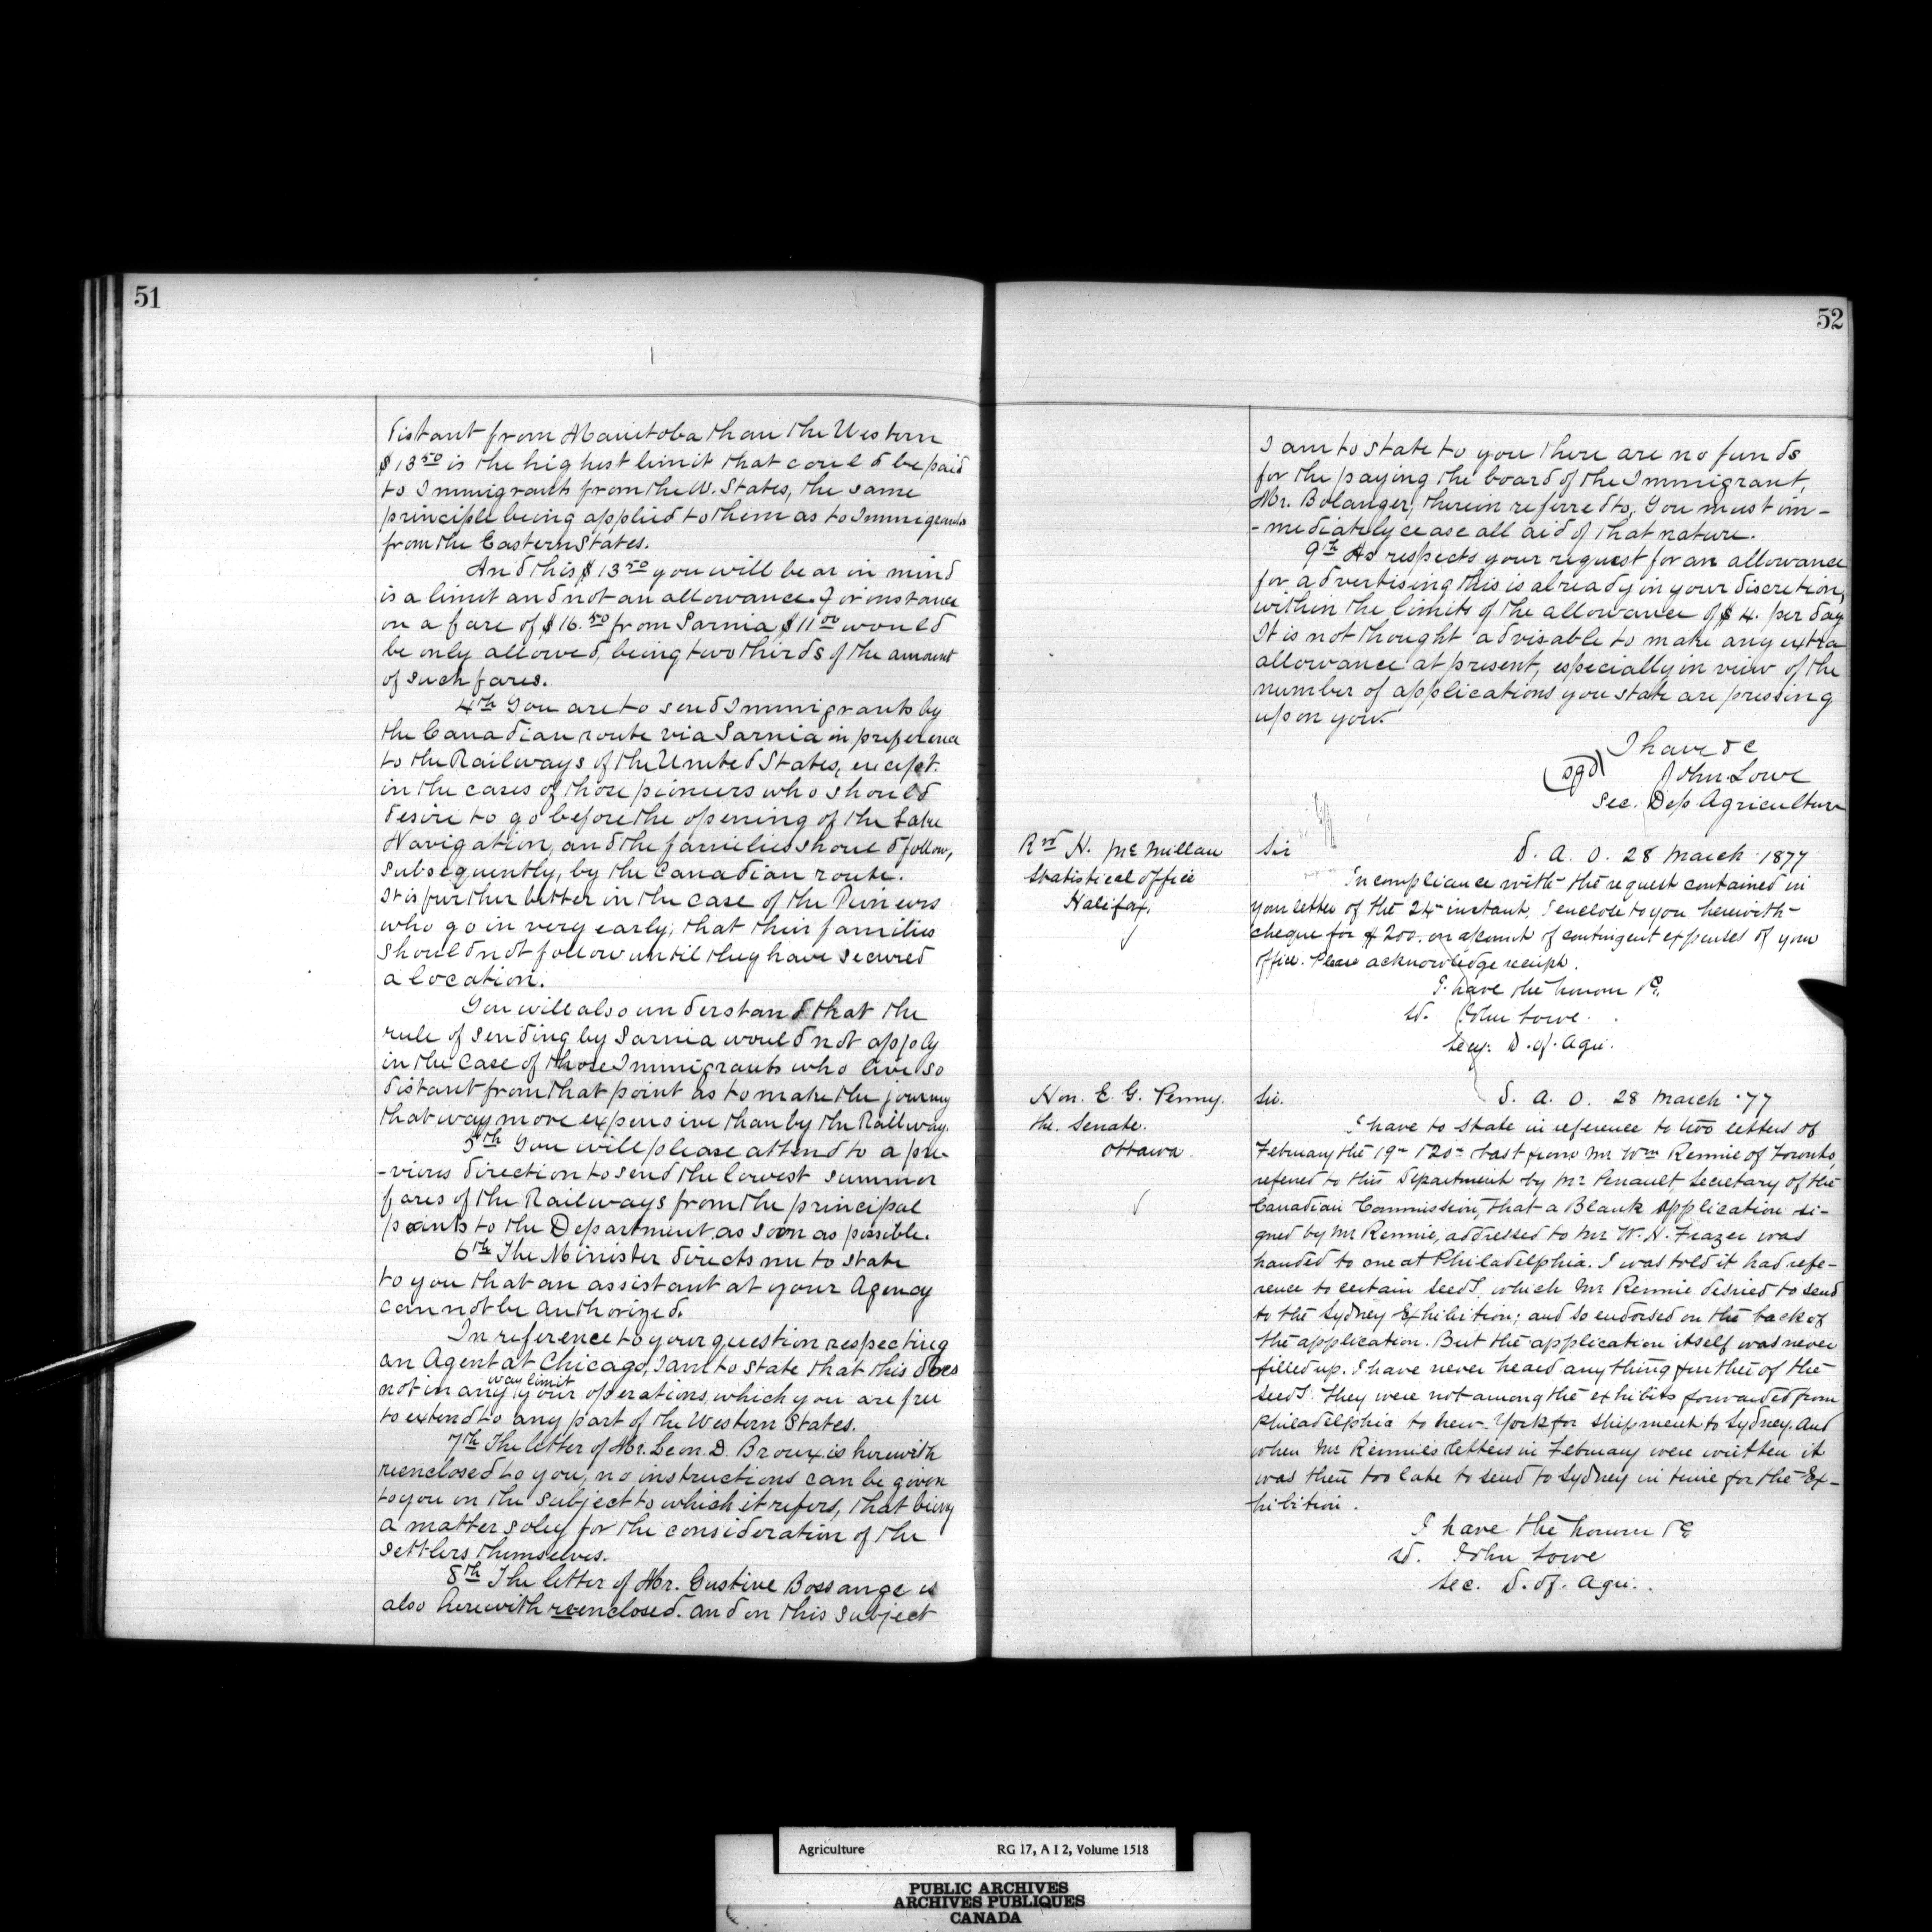 51
distant from Manitoba than the Western
$13 50 is the highest limit that could be paid
to Immigrants from the W. States, the same
principle being applied to them as to Immigrants
from the Eastern States.
And this $13 50 you will bear in mind
is a limit and not an allowance. For instance
on a fare of $16. 50 from Sarnia $11 00 would
be only allowed, being two thirds of the amount
of such fares.
4th You are to send Immigrants by
the Canadian route via Sarnia in preference
to the Railways of the United States, except.
in the cases of those pioneers who should
desire to go before the opening of the Lake
Navigation, and the families should follow,
subsequently, by the Canadian route.
It is further better in the case of the Pioneers
who go in very early; that their families
should not follow until they have secured
a location.
You will also understand that the
rule of sending by Sarnia would not apply
in the case of those Immigrants who live so
distant from that point as to make the journey
that way more expensive than by the Railway.
5th You will please attend to a pre-
-vious direction to send the lowest summer
fares of the Railways from the principal
points to the Department as soon as possible.
6th The Minister directs me to state
to you that an assistant at your Agency
cannot be authorized.
In reference to your question respecting
an Agent at Chicago, I am to state that this does
not in any way limit your operations, which you are free
to extend to any part of the Western States.
7th The letter of Mr. Leon. D. Broux is herewith
reenclosed to you, no instructions can be given
to you on the subject to which it refers, that being
a matter soley for the consideration of the
settlers themselves.
8th The letter of Mr. Gustive Bossange is
also herewith reenclosed. and on this subject
52
I am to state to you there are no funds
for the paying the board of the Immigrant,
Mr. Bolanger, therein referred to, You must im-
-mediately cease all aid of that nature.
9th As respects your request for an allowance
for advertising this is already in your discretion,
within the limits of the allowance of $4. per day
It is not thought advisable to make any extra
allowance at present, especially in view of the
number of applications you state are pressing
upon you.
I have &c
(sgd) John Lowe
Sec. Dep Agriculture
Rvd H. McMillan
Statistical Office
Halifax,
Sir D. A. O. 28 March 1877
In compliance with the request contained in
your letter of the 24 instant, I enclose to you herewith
cheque for $200. on account of contingent expenses of your
office. Please acknowledge receipt.
I have the honour &c.
sd. John Lowe.
Secy. D. of. Agri.
Hon. E. G. Penny.
the. Senate.
Ottawa.
Sir. D. A. O. 28 March '77
I have to state in reference to two letters of
February the 19th & 20th last from Mr Wm Rennie of Toronto,
referred to this Department by Mr Perrault, Secretary of the
Canadian Commission, that a Blank application si-
gned by Mr Rennie, addressed to Mr W. H. Frazer was
handed to one at Philadelphia. I was told it had refe-
rence to certain seeds, which Mr Rennie desired to send
to the Sydney Exhibition; and so endorsed on the back of
the application. But the application itself was never
filled up. I have never heard anything further of the
seeds. They were not among the exhibits forwarded from
Philadelphia to New-York for shipment to Sydney. And
when Mr Rennie's letters in February were written it
was then too late to send to Sydney in time for the Ex-
hibition.
I have the honour &c
sd. John Lowe
Sec. D. of. Agri..
Agriculture RG 17, A I 2, Volume 1518
PUBLIC ARCHIVES
ARCHIVES PUBLIQUES
CANADA